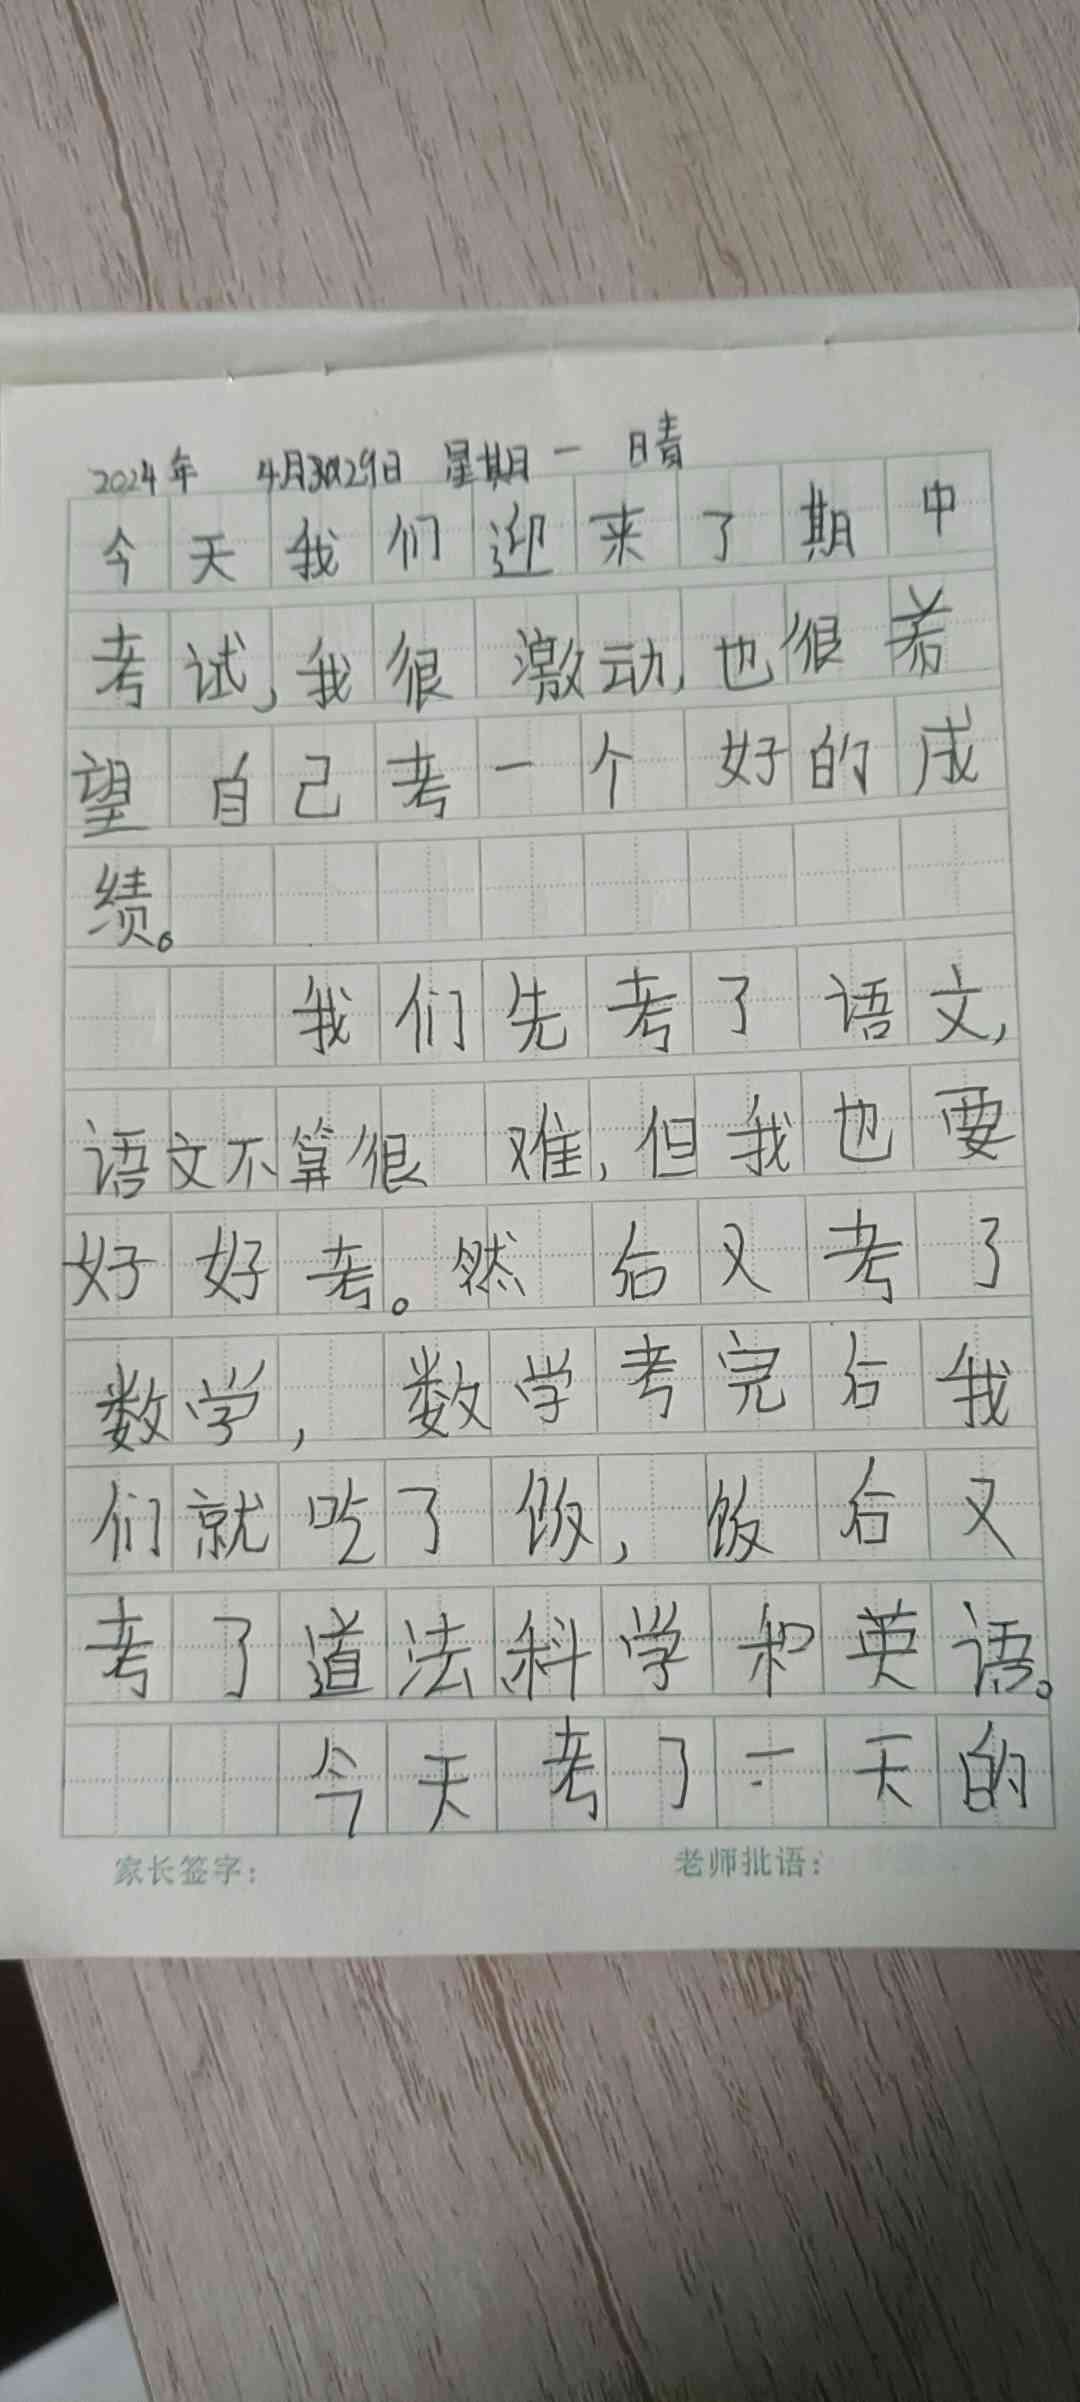 2024年 4月29日 星期一 晴
今天我们迎来了期中
考试,我很激动,也很希
望自己考一个好的成
绩。
我们先考了语文,
语文不算很难,但我也要
好好考。然后又考了
数学,数学考完后我
们就吃了饭,饭后又
考了道法科学和英语。
今天考了一天的
家长签字: 老师批语: